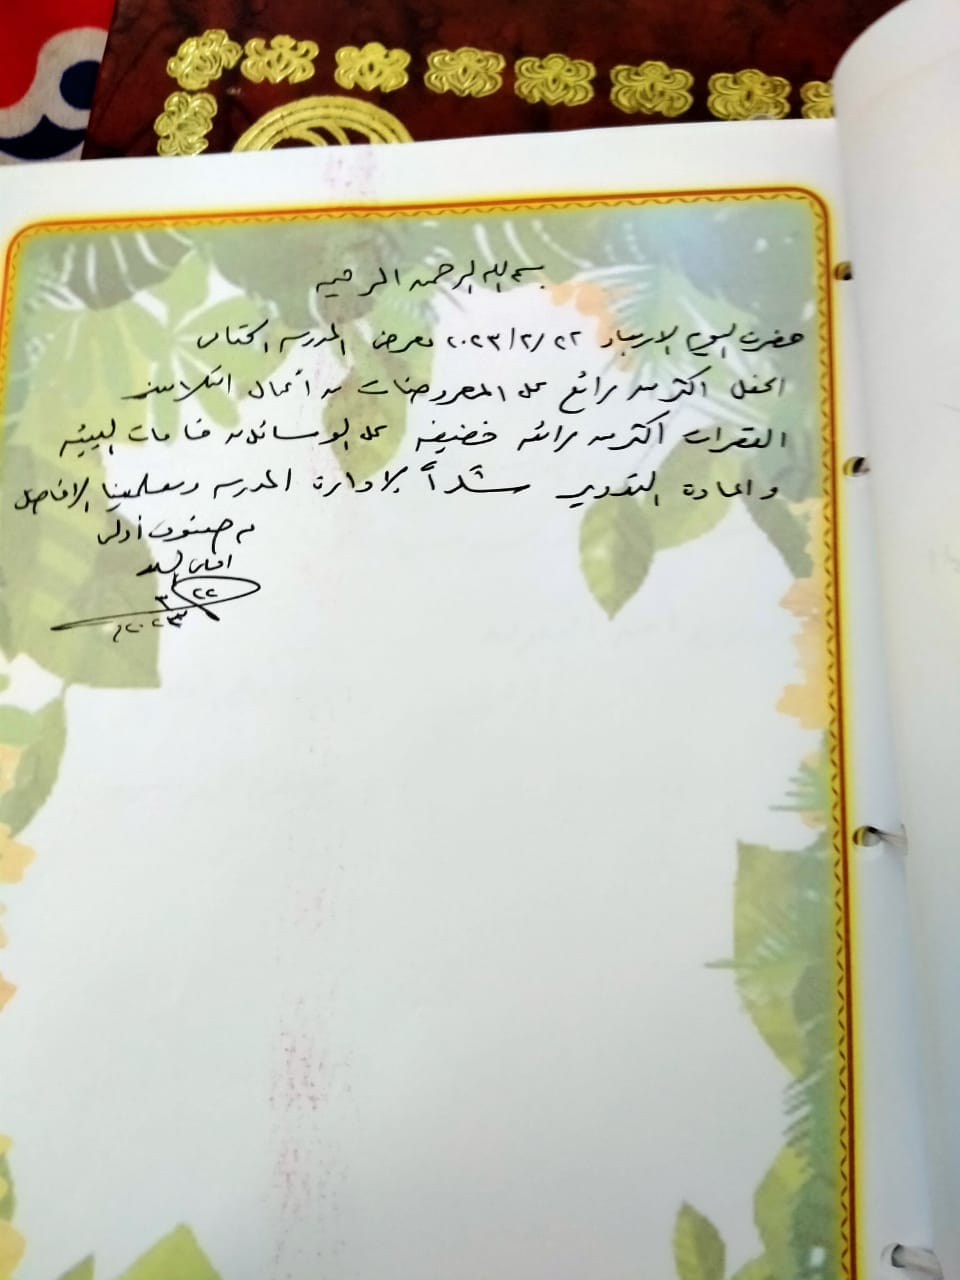 بسم الله الرحمن الرحيم
حضرت اليوم الاربعاء ٢٠٢٣/٢/٢٢ معرض المدرسة الختامى
الحفل اكثر من رائع كل المعروضات من أعمال التلاميذ
الفقرات اكثر من رائعه خفيفه كل الوسائل من خامات البيئه
واعادة التدوير شكراً لإدارة المدرسه ومعلمينا الافاضل
م صفوف أولى
امانى السيد
٢٢
٣
٢٠٢٣م